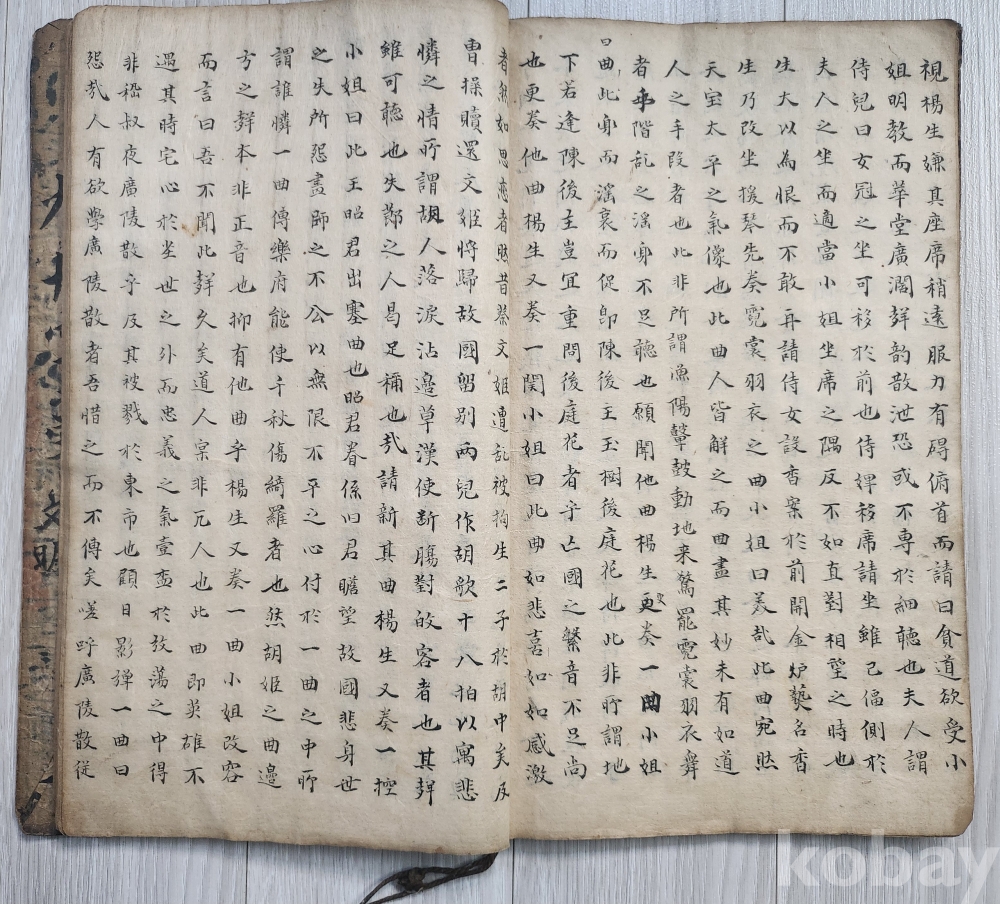 視楊生嫌其座席稍遠服力有碍俯首而請曰貧道欲受小
姐明教而華堂廣濶聲韵散泄恐或不專於細聽也夫人謂
侍兒曰女冠之坐可移於前也侍婢移席請坐雖已偪側於
夫人之坐而適當小姐坐席之隅反不如直對相望之時也
生大以為恨而不敢再請侍女設香案於前開金炉爇名香
生乃改坐援琴先奏霓裳羽衣之曲小姐曰美哉此曲宛然
天宝太平之氣像也此曲人皆解之而曲盡其妙未有如道
人之手段者也此非所謂漁陽鼙鼓動地来驚罷霓裳羽衣舞
者乎階乱之滛身不足聽也願聞他曲楊生更奏一曲小姐
曰曲此身而滛哀而促卽陳後主玉樹後庭花也此非所謂地
下若逢陳後主豈宜重問後庭花者乎亡國之繁音不足尚
也更奏他曲楊生又奏一関小姐曰此曲如悲喜如如感激
者然如思恋者然昔蔡文姬遭乱被拘生二子於胡中矣及
曹操贖還文姬將歸故國留別兩兒作胡歌十八拍以寓悲
憐之情所謂胡人落淚沾邉草漢使断膓對故客者也其聲
雖可聽也失節之人曷足稱也㢤請新其曲楊生又奏一控
小姐曰此王昭君出塞曲也昭君眷係旧君瞻望故國悲身世
之失所怨畫師之不公以無限不平之心付於一曲之中所
謂誰憐一曲傳樂府能使千秋傷綺羅者也然胡姬之曲邉
方之聲本非正音也抑有他曲乎楊生又奏一曲小姐改容
而言曰吾不聞此聲久矣道人宲非凡人也此曲即英雄不
遇其時宅心於㘴世之外而忠義之氣壹欝於放蕩之中得
非嵇叔夜廣陵散乎及其被戮於東市也顧日影彈一曲曰
怨㢤人有欲學廣陵散者吾惜之而不傳矣嗟呼廣陵散從
kobay